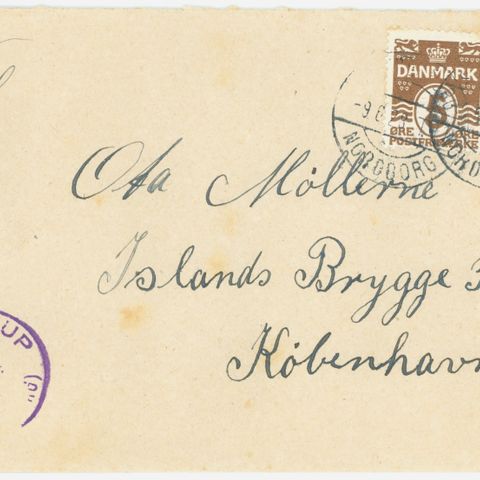 DANMARK
5
ØRE ØRE
POSTFRIMÆRKE
-9 6
NORDBORG
Ota Møllerne
Islands Brygge 3
København
UP